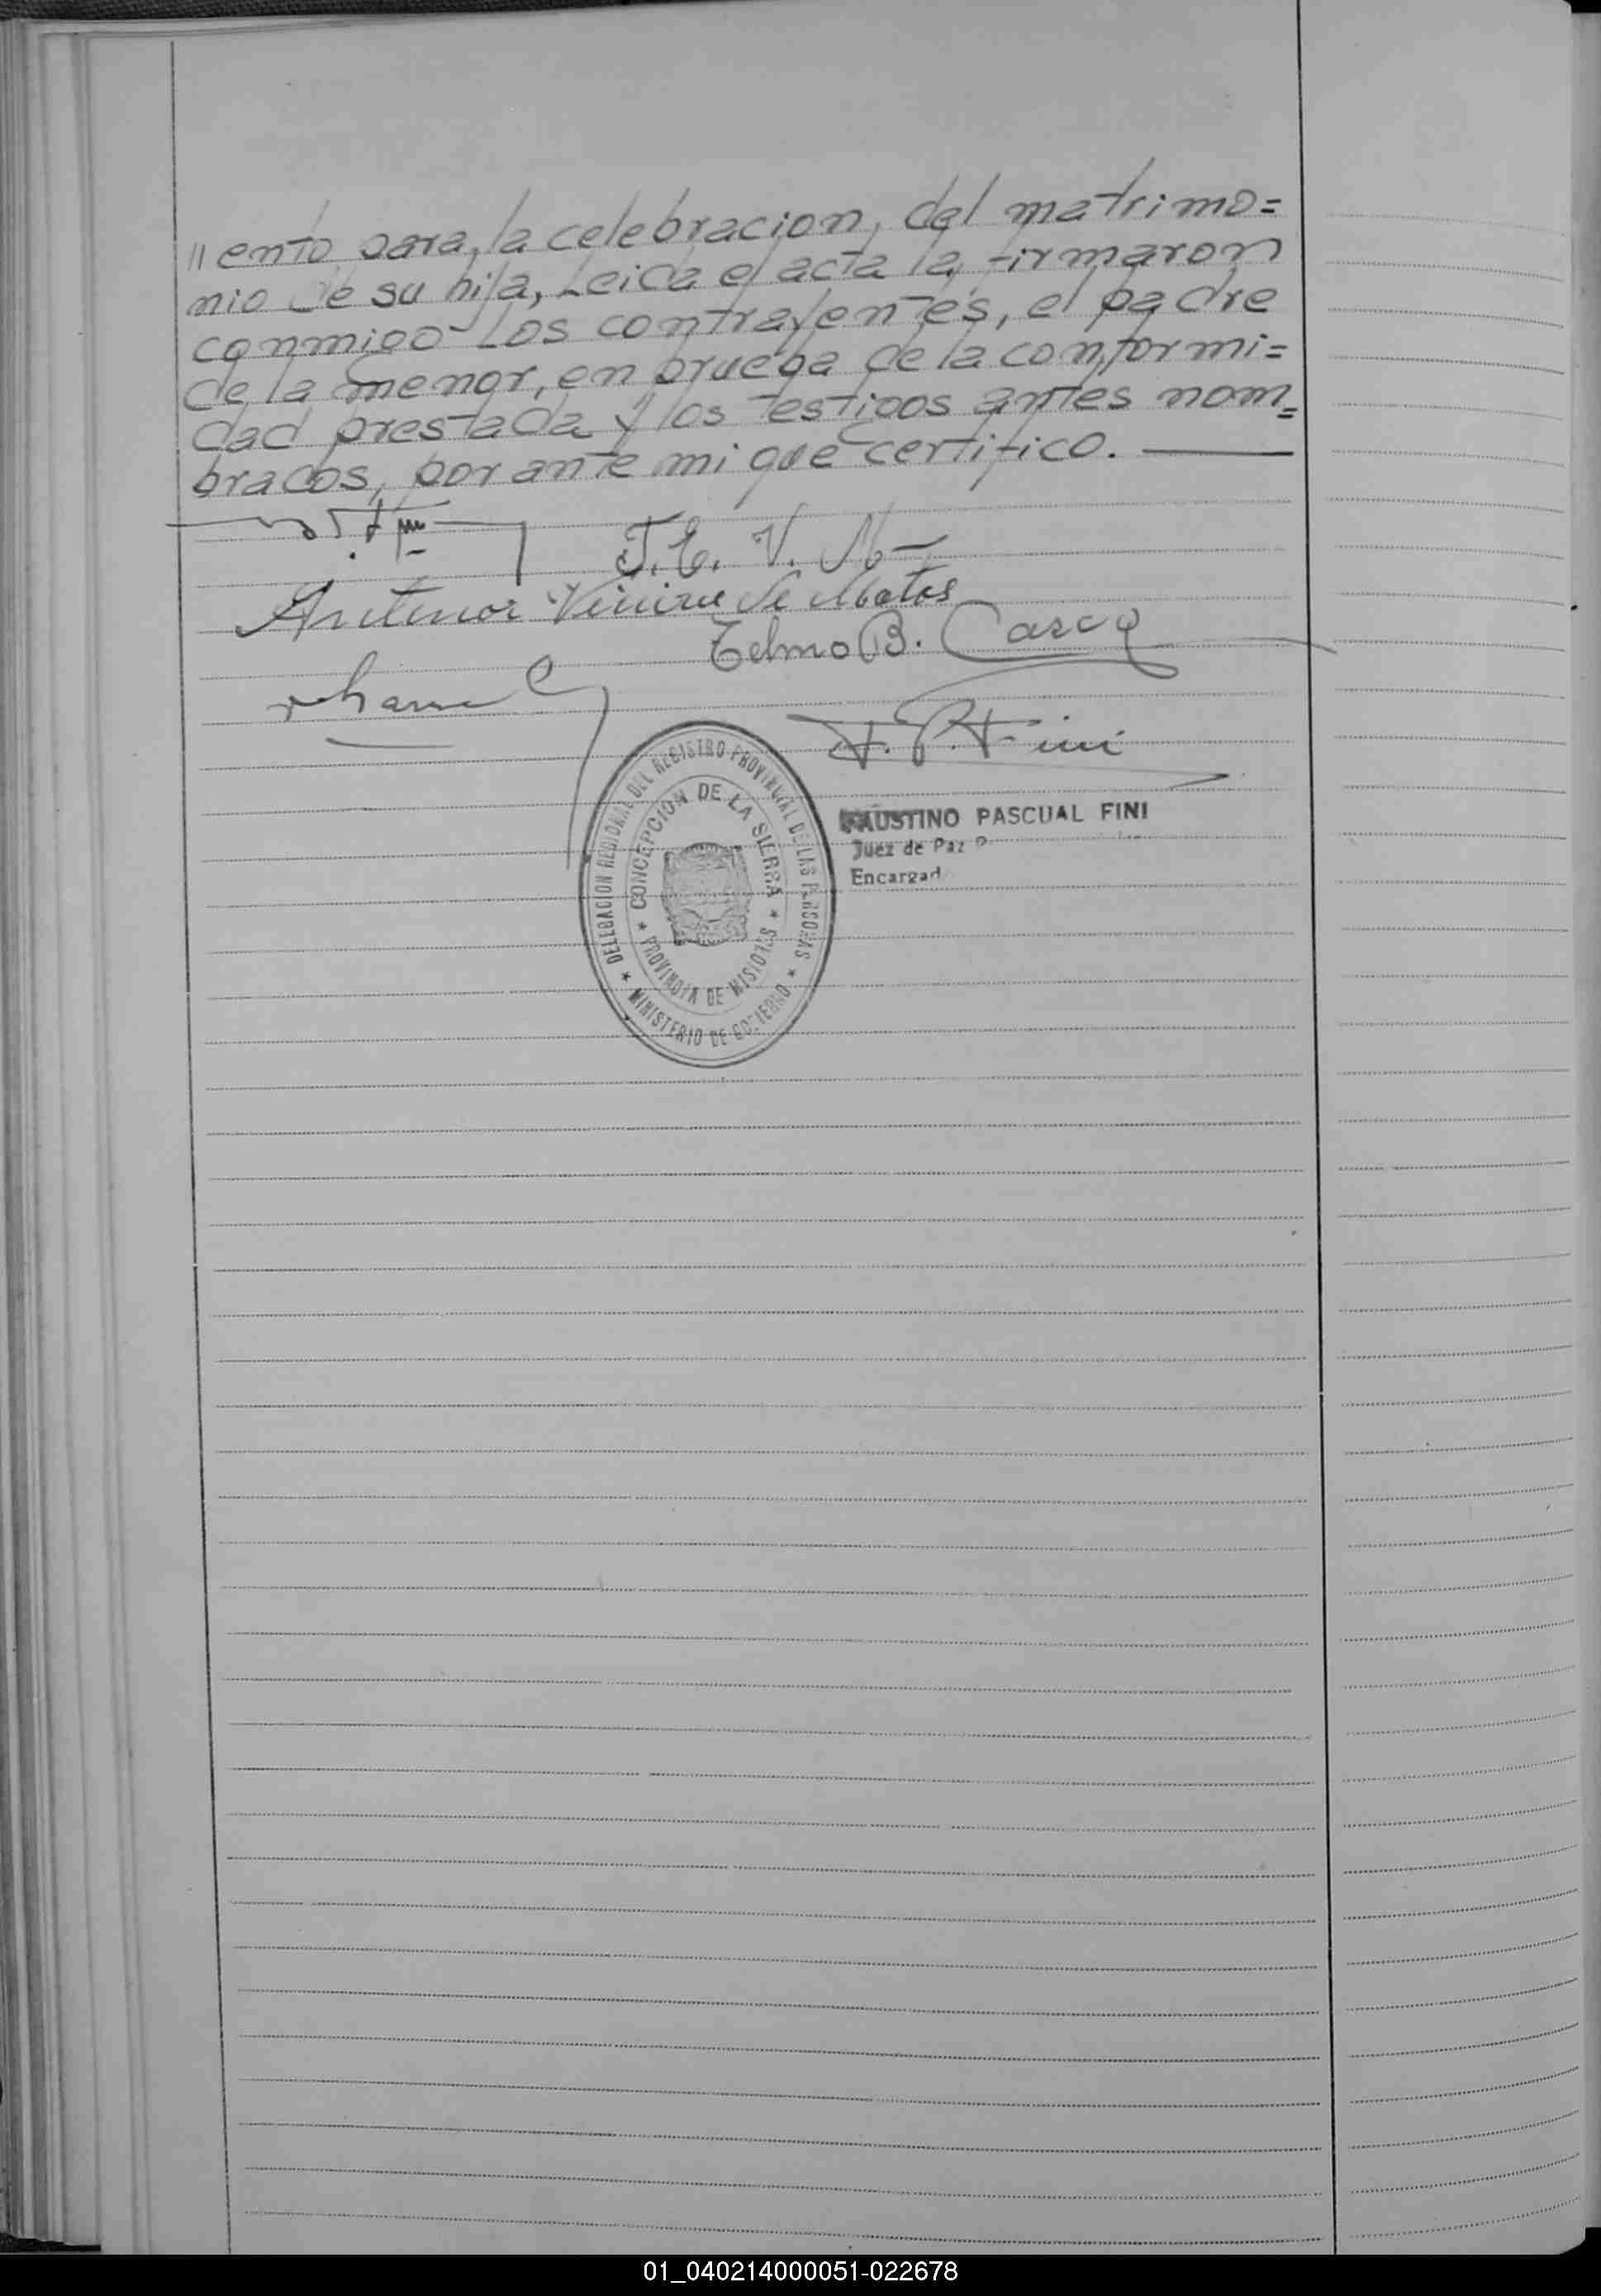 // ento para, la celebracion, del matrimo=
nio de su hija, Leida el acta la firmaron
conmigo Los contrayentes, el padre
de la menor, en prueba de la conformi=
dad prestada y los testigos antes nom=
brados, por ante mi que certifico.
J.E. V. M
Antenor Vieira de Matos
Telmo B. 
F. P. Fini
FAUSTINO PASCUAL FINI
Juez de Paz
Encargad
DELEGACION REGIONAL DEL REGISTRO PROVINCIAL DE LAS PERSONAS
CONCEPCION DE LA SIERRA
★ PROVINCIA DE MISIONES ★
★ MINISTERIO DE GOBIERNO ★
01_040214000051-022678